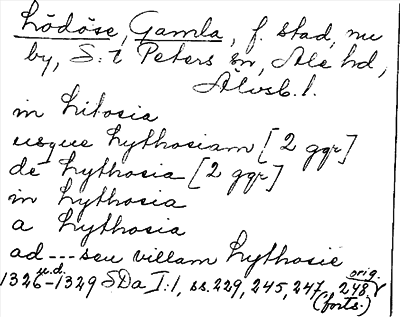 Lödöse, Gamla, f. stad, nu
by, S:t Peters sn, Ale hd,
Älvsb. l.
in Litosia
usque Lythosiam [2 ggr]
de Lythosia [2 ggr]
in Lythosia
a Lythosia
ad --- seu villam Lythosie
1326 u.d.-1329 SDa I:1, ss. 229, 245, 247, 248 orig.
(forts.)